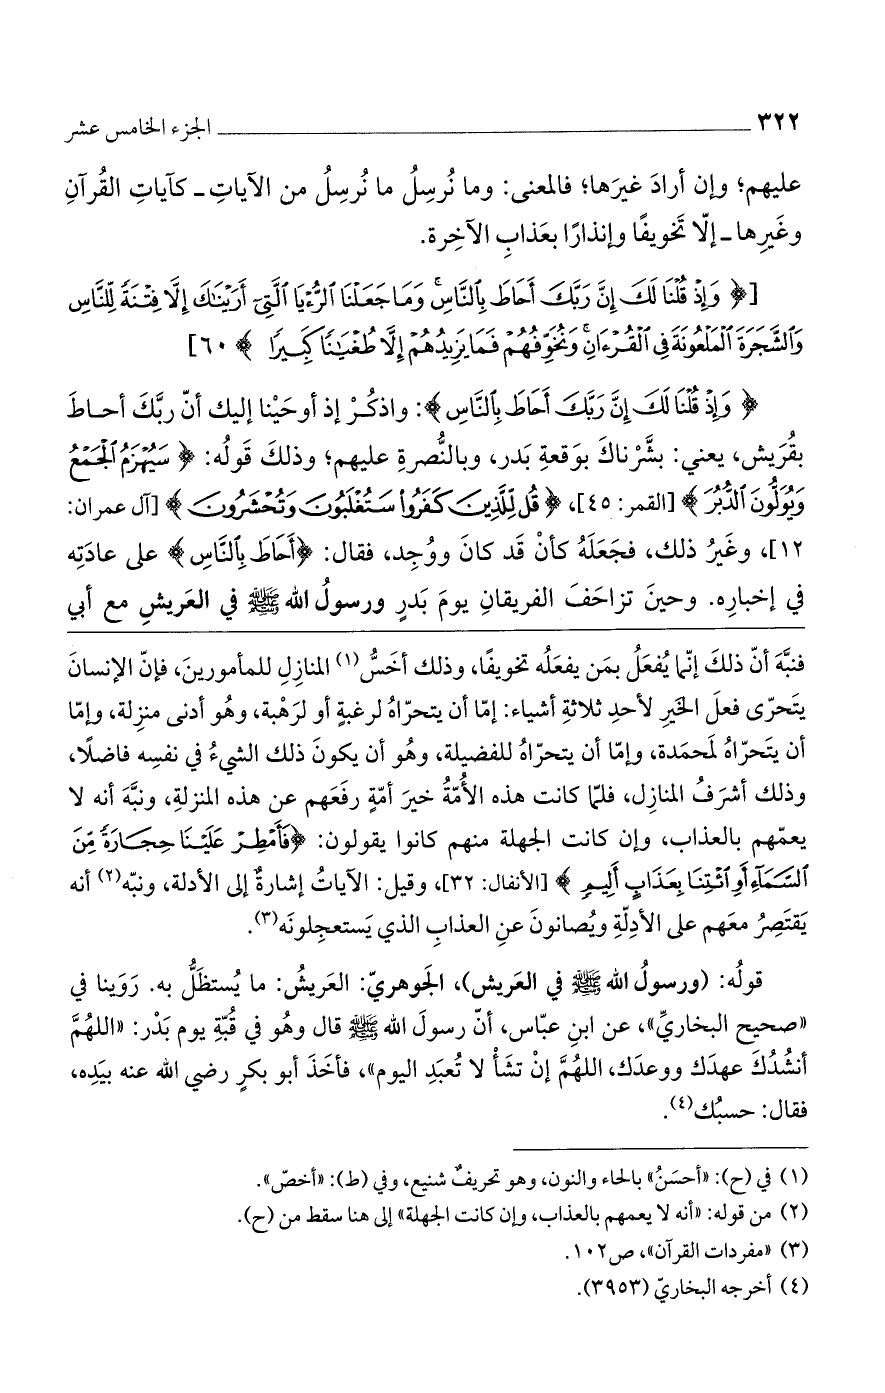 ٣٢٢ الجزء الخامس عشر
عليهم؛ وإن أرادَ غيرَها؛ فالمعنى: وما نُرسِلُ ما نُرسِلُ من الآياتِ ـ كآياتِ القُرآنِ
وغَيرِها ـ إلّا تَخويفًا وإنذارًا بعَذابِ الآخِرة.
[﴿ وَإِذْ قُلْنَا لَكَ إِنَّ رَبَّكَ أَحَاطَ بِٱلنَّاسِ ۚ وَمَا جَعَلْنَا ٱلرُّءْيَا ٱلَّتِىٓ أَرَيْنَٰكَ إِلَّا فِتْنَةً لِّلنَّاسِ
وَٱلشَّجَرَةَ ٱلْمَلْعُونَةَ فِى ٱلْقُرْءَانِ ۚ وَنُخَوِّفُهُمْ فَمَا يَزِيدُهُمْ إِلَّا طُغْيَٰنًا كَبِيرًا ﴾ ٦٠]
﴿ وَإِذْ قُلْنَا لَكَ إِنَّ رَبَّكَ أَحَاطَ بِٱلنَّاسِ ﴾: واذكُرْ إذ أوحَيْنا إليك أنّ ربَّكَ أحاطَ
بقُرَيش، يعني: بشَّرْناكَ بوَقعةِ بَدر، وبالنُّصرةِ عليهم؛ وذلكَ قَولُه: ﴿ سَيُهْزَمُ ٱلْجَمْعُ
وَيُوَلُّونَ ٱلدُّبُرَ ﴾ [القمر: ٤٥]، ﴿ قُل لِّلَّذِينَ كَفَرُوا۟ سَتُغْلَبُونَ وَتُحْشَرُونَ ﴾ [آل عمران:
١٢]، وغَيرُ ذلك، فجَعَلَهُ كأنْ قَد كانَ ووُجِد، فقال: ﴿أَحَاطَ بِٱلنَّاسِ ﴾ على عادَتِه
في إخبارِه. وحينَ تزاحَفَ الفريقانِ يومَ بَدرٍ ورسولُ الله ﷺ في العَريشِ مع أبي
فنبَّهَ أنّ ذلكَ إنّما يُفعَلُ بمَن يفعَلُه تخويفًا، وذلك أخَسُّ(١) المنازِلِ للمأمورينَ، فإنّ الإنسانَ
يتَحرّى فعلَ الخَيرِ لأحدِ ثلاثةِ أشياء: إمّا أن يتحرّاهُ لرغبةٍ أو لرَهْبة، وهُو أدنى منزِلة، وإمّا
أن يتَحرّاهُ لمَحمَدة، وإمّا أن يتحرّاهُ للفضيلة، وهُو أن يكونَ ذلك الشيءُ في نفسِه فاضلًا،
وذلك أشرَفُ المنازِل، فلمّا كانت هذه الأُمّةُ خيرَ أمّةٍ رفَعَهم عن هذه المنزلةِ، ونبَّهَ أنه لا
يعمّهم بالعذاب، وإن كانت الجهلة منهم كانوا يقولون: ﴿فَأَمْطِرْ عَلَيْنَا حِجَارَةً مِّنَ
ٱلسَّمَآءِ أَوِ ٱئْتِنَا بِعَذَابٍ أَلِيمٍ ﴾ [الأنفال: ٣٢]، وقيل: الآياتُ إشارةٌ إلى الأدلة، ونبّه(٢) أنه
يَقتَصِرُ معَهم على الأدِلّةِ ويُصانونَ عنِ العذابِ الذي يَستعجِلونَه(٣).
قولُه: (ورسولُ الله ﷺ في العَريش)، الجَوهريّ: العَريشُ: ما يُستظَلُّ به. رَوَينا في
«صحيح البخاريِّ»، عن ابنِ عبّاس، أنّ رسولَ الله ﷺ قال وهُو في قُبّةِ يوم بَدْر: «اللهُمَّ
أنشُدُكَ عهدَك ووعدَك، اللهُمَّ إنْ تشَأْ لا تُعبَدِ اليوم»، فأخَذَ أبو بكرٍ رضي الله عنه بيَدِه،
فقال: حسبُك(٤).
(١) في (ح): «أحسَنُ» بالحاء والنون، وهو تحريفٌ شنيع، وفي (ط): «أخصّ».
(٢) من قوله: «أنه لا يعمهم بالعذاب، وإن كانت الجهلة» إلى هنا سقط من (ح).
(٣) «مفردات القرآن»، ص١٠٢.
(٤) أخرجه البخاريّ (٣٩٥٣).